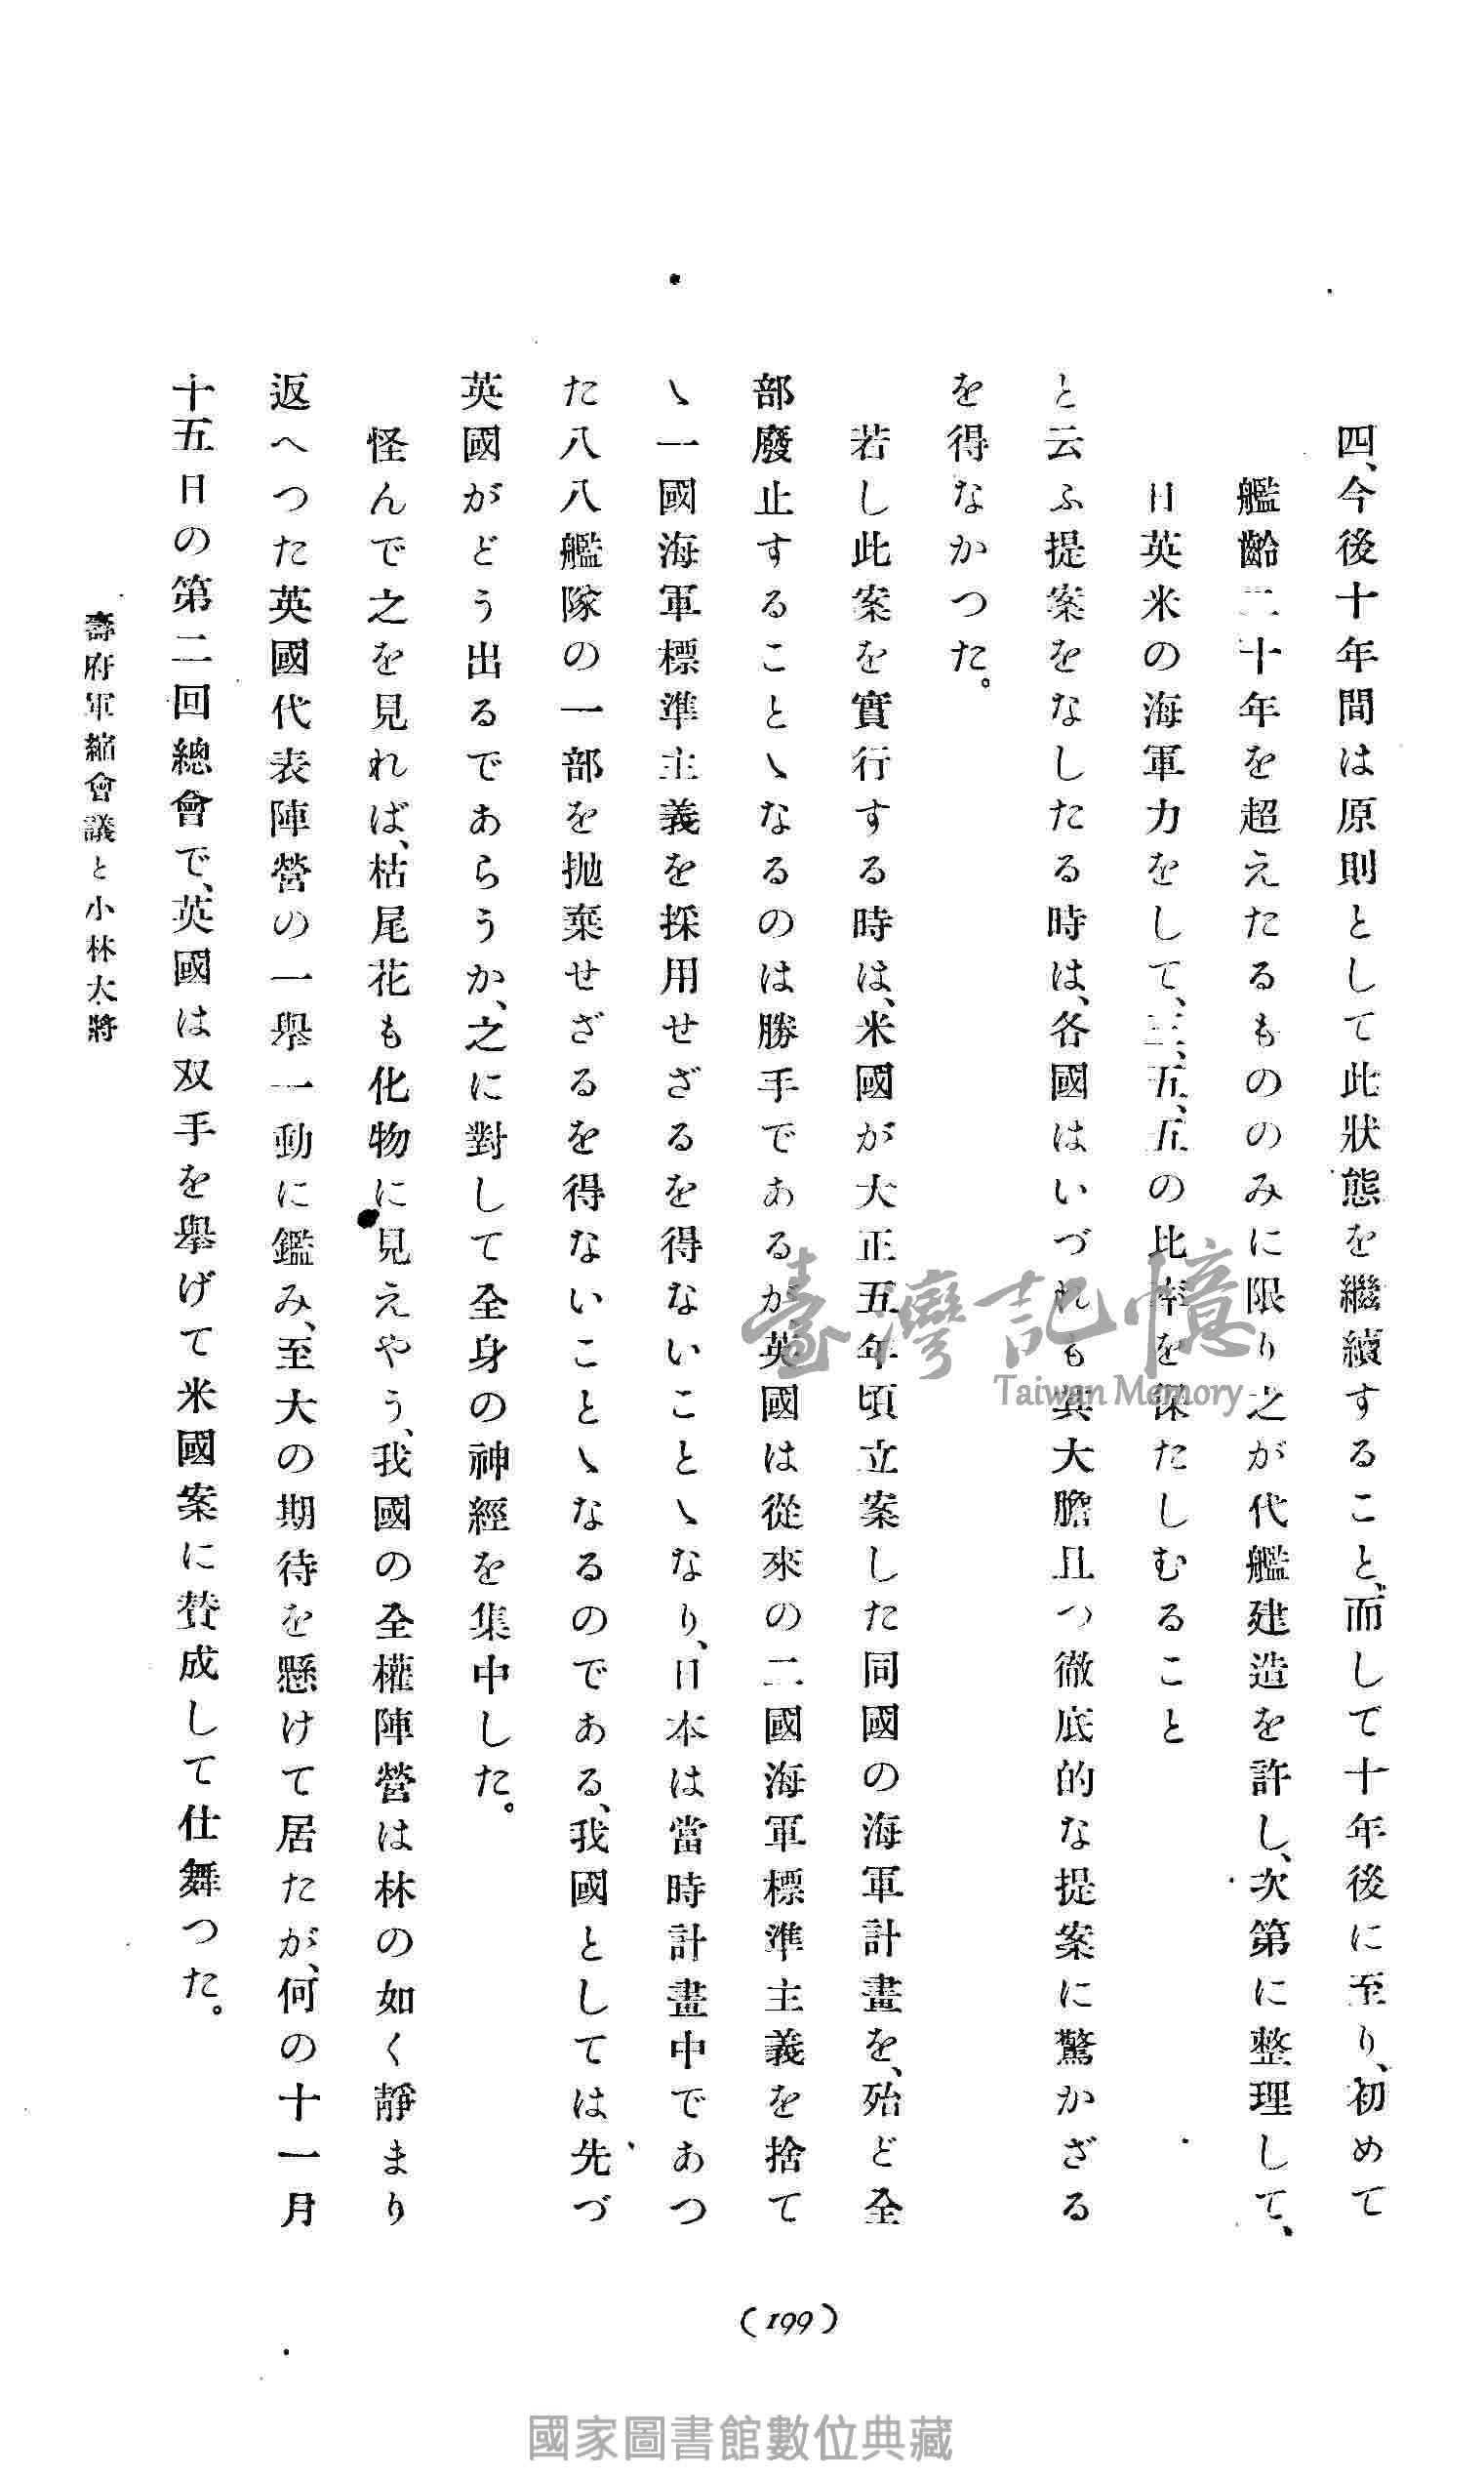 四、今後十年間は原則として此狀態を繼續すること、而して十年後に至り、初めて
艦齡二十年を超えたるもののみに限り之が代艦建造を許し、次第に整理して、
日英米の海軍力をして、三、五、五の比率を保たしむること
と云ふ提案をなしたる時は、各國はいづれも其大膽且つ徹底的な提案に驚かざる
を得なかつた。
若し此案を實行する時は、米國が大正五年頃立案した同國の海軍計畫を、殆ど全
部廢止することゝなるのは勝手であるが、英國は從來の二國海軍標準主義を捨て
ゝ一國海軍標準主義を採用せざるを得ないことゝなり、日本は當時計畫中であつ
た八八艦隊の一部を抛棄せざるを得ないことゝなるのである、我國としては先づ
英國がどう出るであらうか、之に對して全身の神經を集中した。
怪んで之を見れば、枯尾花も化物に見えやう、我國の全權陣營は林の如く靜まり
返へつた英國代表陣營の一擧一動に鑑み、至大の期待を懸けて居たが、何の十一月
十五日の第二回總會で、英國は双手を擧げて米國案に賛成して仕舞つた。
壽府軍縮會議と小林大將
(199)
臺灣記憶
Taiwan Memory
國家圖書館數位典藏